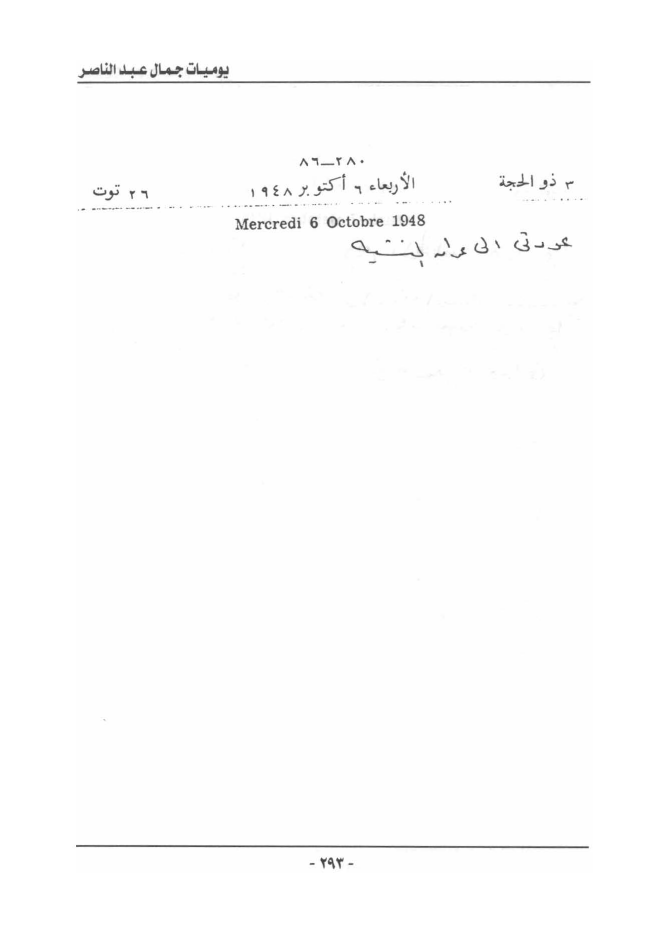 يوميات جمال عبد الناصر
٢٨٠—٨٦
٣ ذو الحجة الأربعاء ٦ أكتوبر ١٩٤٨ ٢٦ توت
Mercredi 6 Octobre 1948
عودتى الى عراق المنشيه
- ٢٩٣ -